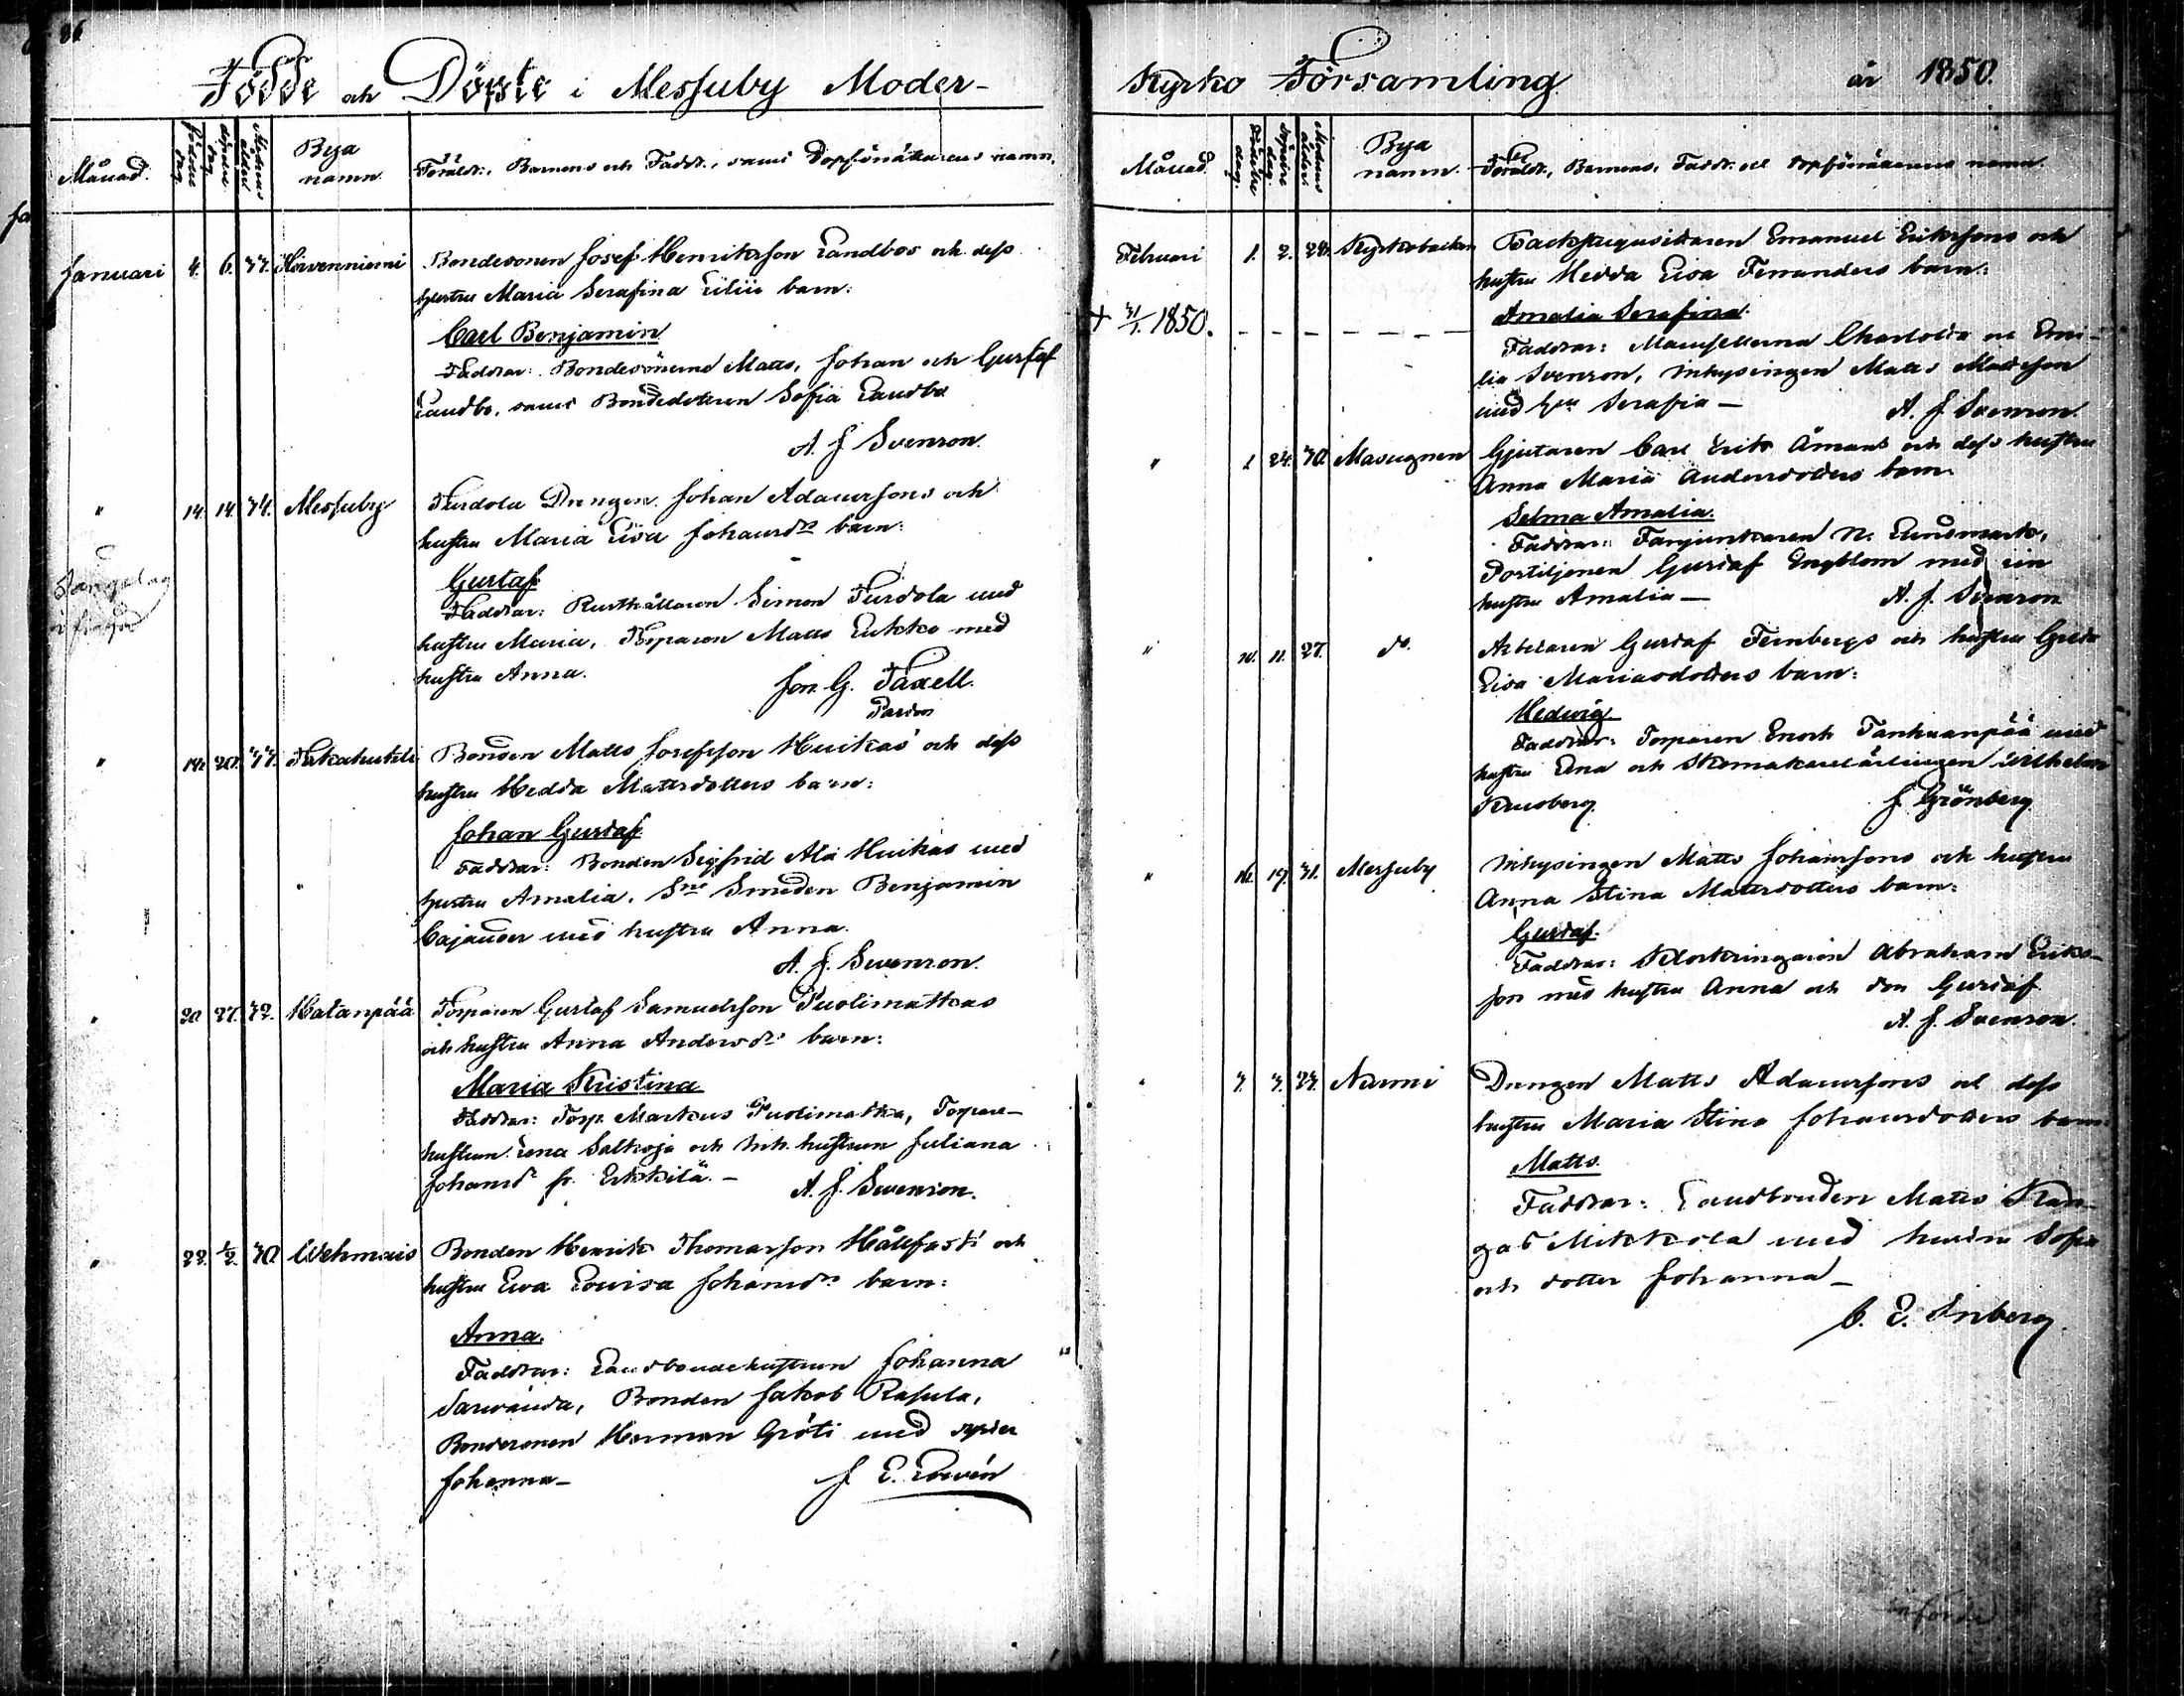 86
Födde och Döpte i Messuby Moder-
Månad. födelse dag döpelse dag Modrens ålder Bya namn Föräldr., Barnens och Faddr., samt Dopförrättarens namn.
Januari 4. 6. 37. Hirvenniemi Bondesonen Josef Henriksson Landbos och dess
hustru Maria Serafina barn:
Carl Benjamin
Faddrar: Bondesönerne Matts, Johan och Gustaf
Landbo, samt Bondedottren Sofia Landbo
A. J. Svenson.
" 14. 14. 34. Messuby Turdola Drengen Johan Adamssons och
hustru Maria Lisa Johansdr barn:
Gustaf
Faddrar: Rusthållaren Simon Turdola med
hustru Maria, Torparen Matts Eukko med
hustru Anna.
Jon. G. Taxell.
Pastor
" 14. 20. 37. Takahuhti Bonden Matts Josefsson Huikas och dess
hustru Hedda Mattsdotters barn:
Johan Gustaf
Faddrar: Bonden Sigfrid Ala Huikas med
hustru Amalia, Sne Smeden Benjamin
Cajander med hustru Anna.
A. J. Swenson.
" 20 27. 32. Hatanpää Torparen Gustaf Samuelsson Puolimatkas
och hustru Anna Andersdr barn:
Maria Kristina
Faddrar: Torp. Markus Puolimatka, Torpare-
hustrun Lena Salkoja och Inh. hustrun Juliana
Johansdr fr. Erkkilä. –
A. J. Swenson.
" 22. 1/2 30. Wehmais Bonden Henrik Thomasson Hållfasts och
hustru Ewa Lovisa Johansdr barn:
Anna.
Faddrar: Landbondehustrun Johanna
Bonden Jakob Rasula,
Bondesonen Herman Gröti med syster
Johanna –
J. E. Lovén
Kyrko Församling år 1850.
Månad. födelse dag. döpelse dag. Modrens ålder. Bya namn. Föräldr., Barnens, Faddr. och dopförrättarens namn.
Februari 1. 2. 28. Kyrkobacken Backstugusittaren Emanuel Erikssons och
hustru Hedda Lisa Fernanders barn:
+ 31/7. 1850. Amalia Serafina.
Faddrar: Mamsellerna Charlotta och Emi-
lia Svenson, Inhysingen Matts Mattsson
med hru Serafia –
A. J. Svenson.
" 1 24. 30. Masugnen Gjutaren Carl Erik Åmans och dess hustru
Anna Maria Andersdotters barn
Selma Amalia.
Faddrar: Fanjunkaren N. Lindmark,
Postiljonen Gustaf Engblom med sin
hustru Amalia –
A. J. Svenson
" 10. 11. 27. do. Arbetaren Gustaf Fernbergs och hustru Greta
Lisa Mariasdotters barn:
Hedwig
Faddrar: Torparen Enoch Tanhuanpää med
hustru Lena och Skomakarelärlingen Wilhelm
Kruseberg.
J. Grönberg
" 16. 17. 31. Messuby Inhysingen Matts Johanssons och hustru
Anna Stina Mattsdotters barn:
Gustaf.
Faddrar: Klockringaren Abraham Eriks-
son med hustru Anna och son Gustaf
A. J. Svenson.
" 3. 3. 23. Nurmi Drengen Matts Adamssons och dess
hustru Maria Stina Johansdotters barn:
Matts.
Faddrar: Landbonden Matts Kan-
gas Mikkola med hustru Sofia
och dotter Johanna –
C. E. Inberg.
införde